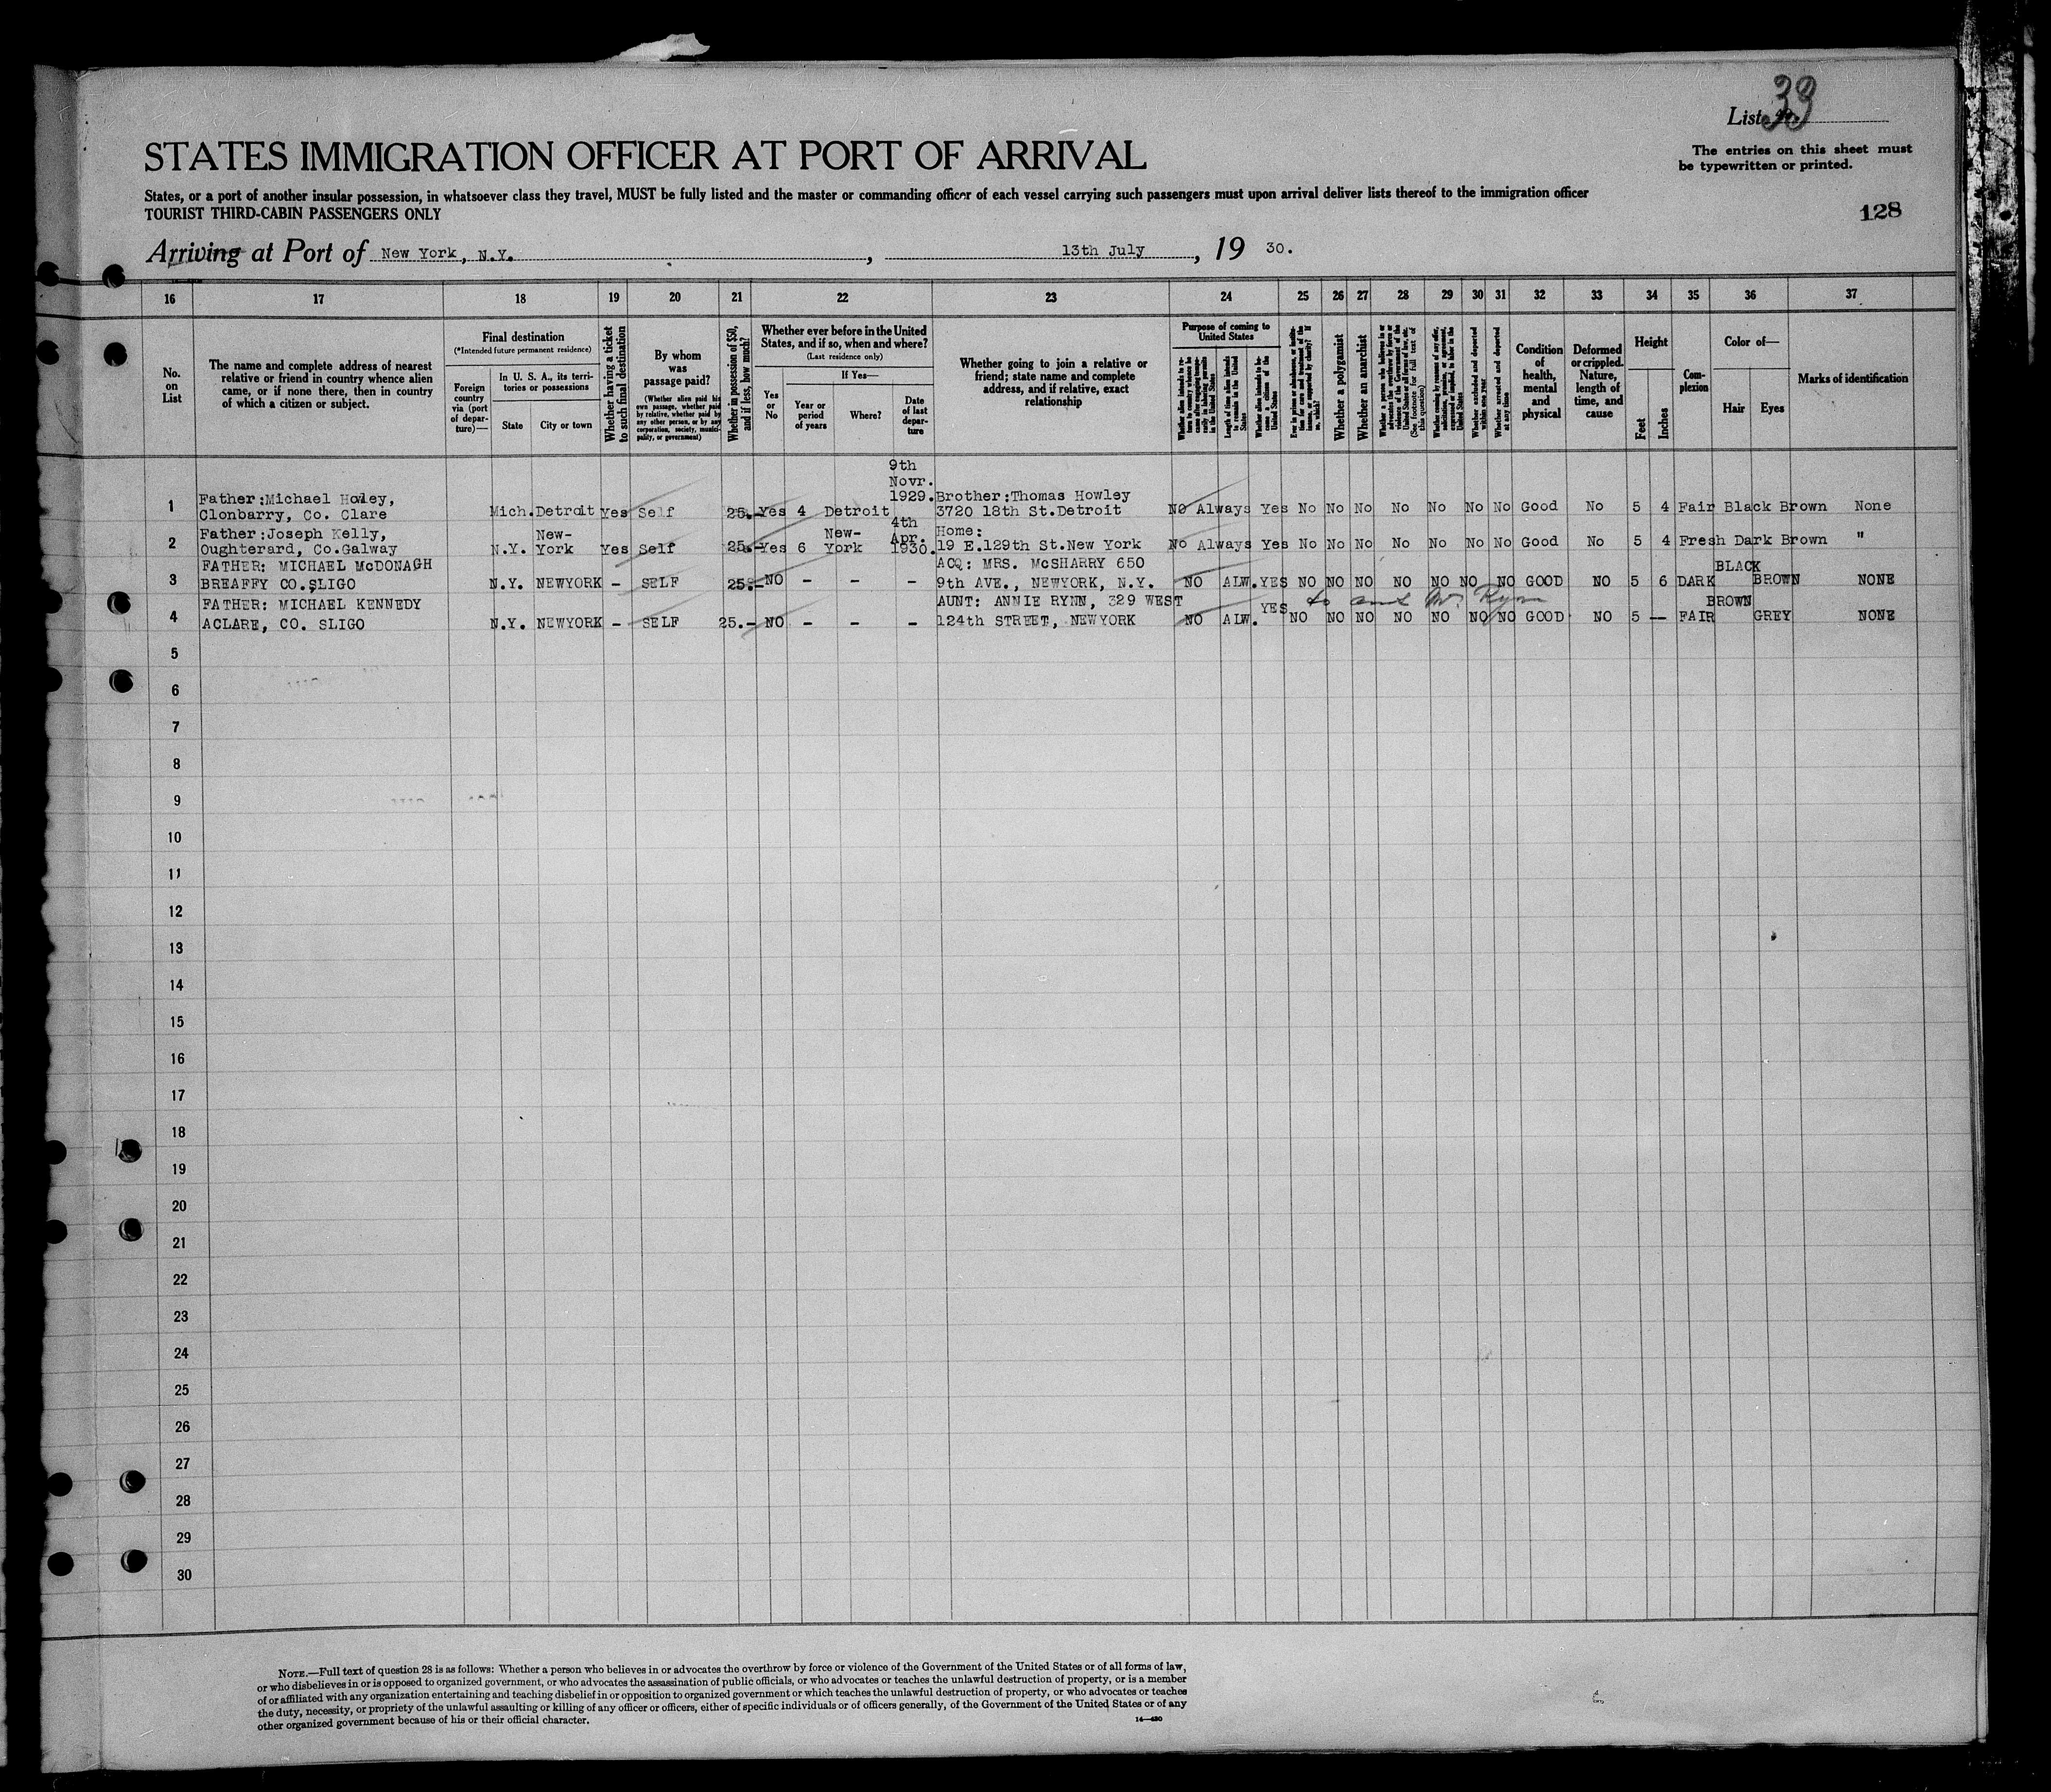 33
List
The entries on this sheet must
be typewritten or printed.
STATES IMMIGRATION OFFICER AT PORT OF ARRIVAL
States, or a port of another insular possession, in whatsoever class they travel, MUST be fully listed and the master or commanding officer of each vessel carrying such passengers must upon arrival deliver lists thereof to the immigration officer
TOURIST THIRD-CABIN PASSENGERS ONLY
128
Arriving at Port of New York, N.Y. , 13th July , 19 30.
16 17 18 19 20 21 22 23 24 25 26 27 28 29 30 31 32 33 34 35 36 37
No. on List
The name and complete address of nearest
relative or friend in country whence alien
came, or if none there, then in country
of which a citizen or subject.
Final destination
(*Intended future permanent residence)
Foreign country via (port of departure)—
In U. S. A., its territories or possessions
State City or town
Whether having a ticket to such final destination
By whom was passage paid?
(Whether alien paid his own passage, whether paid by relative, whether paid by any other person, or by any corporation, society, municipality, or government)
Whether in possession of $50, and if less, how much?
Whether ever before in the United
States, and if so, when and where?
(Last residence only)
Yes or No
If Yes—
Year or period of years
Where?
Date of last departure
Whether going to join a relative or
friend; state name and complete
address, and if relative, exact
relationship
Purpose of coming to United States
Length of time alien intends to remain in the United States
Whether alien intends to become a citizen of the United States
Whether a polygamist
Whether an anarchist
(See footnote for full text of this question)
Whether arrested and deported at any time
Condition of health, mental and physical
Deformed or crippled. Nature, length of time, and cause
Height
Feet Inches
Complexion
Color of—
Hair Eyes
Marks of identification
1 Father:Michael Howley, Clonbarry, Co. Clare Mich. Detroit Yes Self 25.- Yes 4 Detroit 9th Novr. 1929. Brother:Thomas Howley 3720 18th St.Detroit No Always Yes No No No No No No No Good No 5 4 Fair Black Brown None
2 Father:Joseph Kelly, Oughterard, Co.Galway N.Y. New-York Yes Self 25.- Yes 6 New-York 4th Apr. 1930. Home: 19 E.129th St.New York No Always Yes No No No No No No No Good No 5 4 Fresh Dark Brown "
3 FATHER: MICHAEL McDONAGH BREAFFY CO.SLIGO N.Y. NEWYORK - SELF 25.- NO - - - ACQ: MRS. McSHARRY 650 9th AVE., NEWYORK, N.Y. NO ALW. YES NO NO NO NO NO NO NO GOOD NO 5 6 DARK BLACK BROWN NONE
4 FATHER: MICHAEL KENNEDY ACLARE, CO. SLIGO N.Y. NEWYORK - SELF 25.- NO - - - AUNT: ANNIE RYNN, 329 WEST 124th STREET, NEWYORK NO ALW. YES NO NO NO NO NO NO NO GOOD NO 5 — FAIR BROWN GREY NONE
5
6
7
8
9
10
11
12
13
14
15
16
17
18
19
20
21
22
23
24
25
26
27
28
29
30
NOTE.—Full text of question 28 is as follows: Whether a person who believes in or advocates the overthrow by force or violence of the Government of the United States or of all forms of law,
or who disbelieves in or is opposed to organized government, or who advocates the assassination of public officials, or who advocates or teaches the unlawful destruction of property, or is a member
of or affiliated with any organization entertaining and teaching disbelief in or opposition to organized government or which teaches the unlawful destruction of property, or who advocates or teaches
the duty, necessity, or propriety of the unlawful assaulting or killing of any officer or officers, either of specific individuals or of officers generally, of the Government of the United States or of any
other organized government because of his or their official character.
14—430